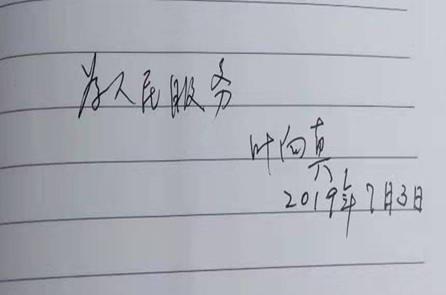 为人民服务
叶向真
2019年7月3日